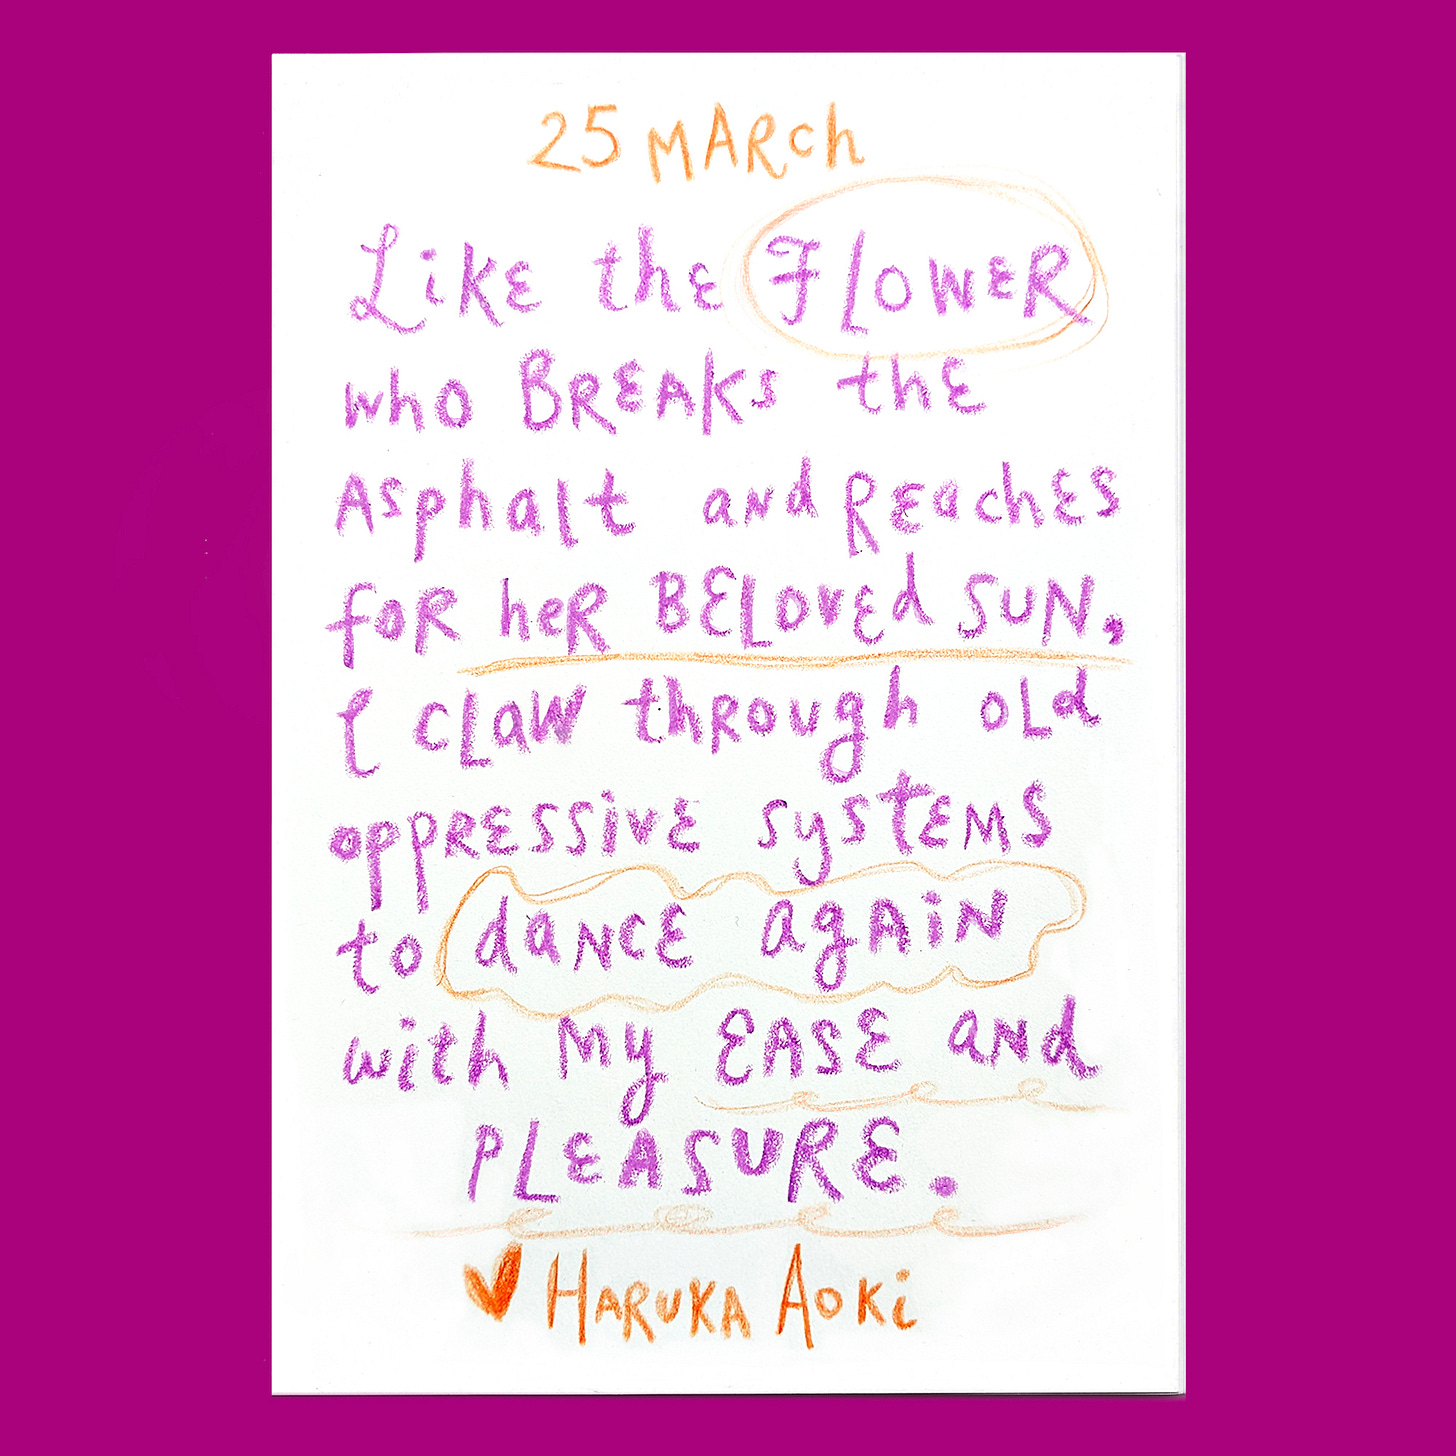 25 MARch
Like the FLOWER
who BREAKS the
Asphalt and REaches
foR heR BELovEd SUN,
I CLaW thRough oLd
oppRESSivE systEMS
to daNCE agAiN
with My EASE aNd
PLEASURE.
♥ HARUKA AOKi